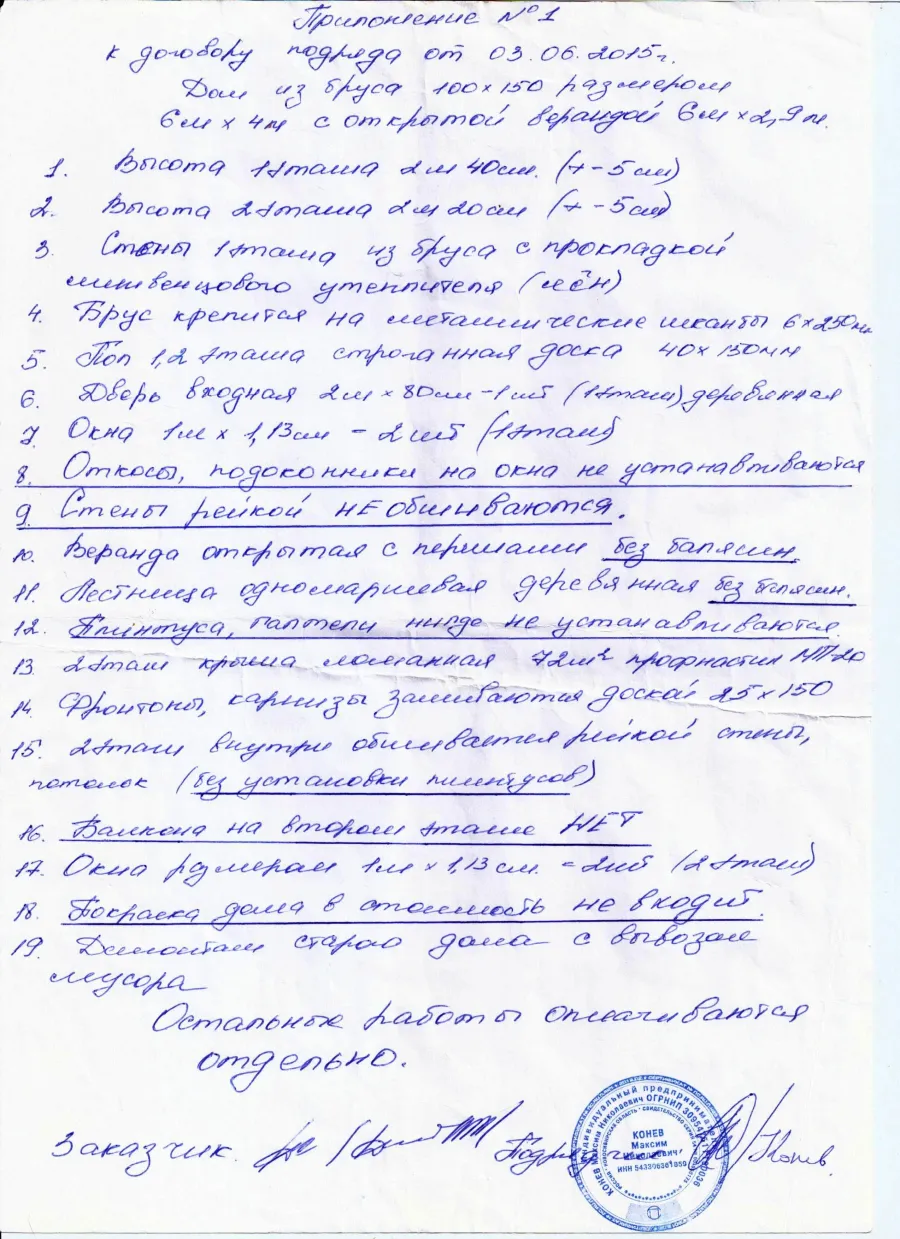 Приложение № 1
к договору подряда от 03.06.2015г.
Дом из бруса 100х150 размером
6м х 4м с открытой верандой 6м х 2,9м.
1. Высота 1этажа 2м 40см. (+-5см)
2. Высота 2этажа 2м 20см (+-5см)
3. Стены 1этажа из бруса с прокладкой
межвенцового утеплителя (лён)
4. Брус крепится на металлические шканты 6х250мм
5. Пол 1,2 этажа строганная доска 40х150мм
6. Дверь входная 2м х 80см-1шт (1этаж) деревянная
7. Окна 1м х 1,13см - 2шт (1этаж)
8. Откосы, подоконники на окна не устанавливаются
9. Стены рейкой НЕ обшиваются.
10. Веранда открытая с перилами без балясин.
11. Лестница одномаршевая деревянная без балясин.
12. Плинтуса, галтели нигде не устанавливаются
13. 2этаж крыша ломанная 72м² профнастил МП-20
14. Фронтоны, карнизы зашиваются доской 25х150
15. 2этаж внутри обшивается рейкой стены,
потолок (без установки плинтусов)
16. Балкона на втором этаже НЕТ
17. Окна размером 1м х 1,13см. = 2шт (2этаж)
18. Покраска дома в стоимость не входит.
19. Демонтаж старого дома с вывозом
мусора
Остальные работы оплачиваются
отдельно.
Заказчик.
Конев.
Индивидуальный предприниматель
КОНЕВ Максим Николаевич ОГРНИП
КОНЕВ
Максим
Николаевич
ИНН